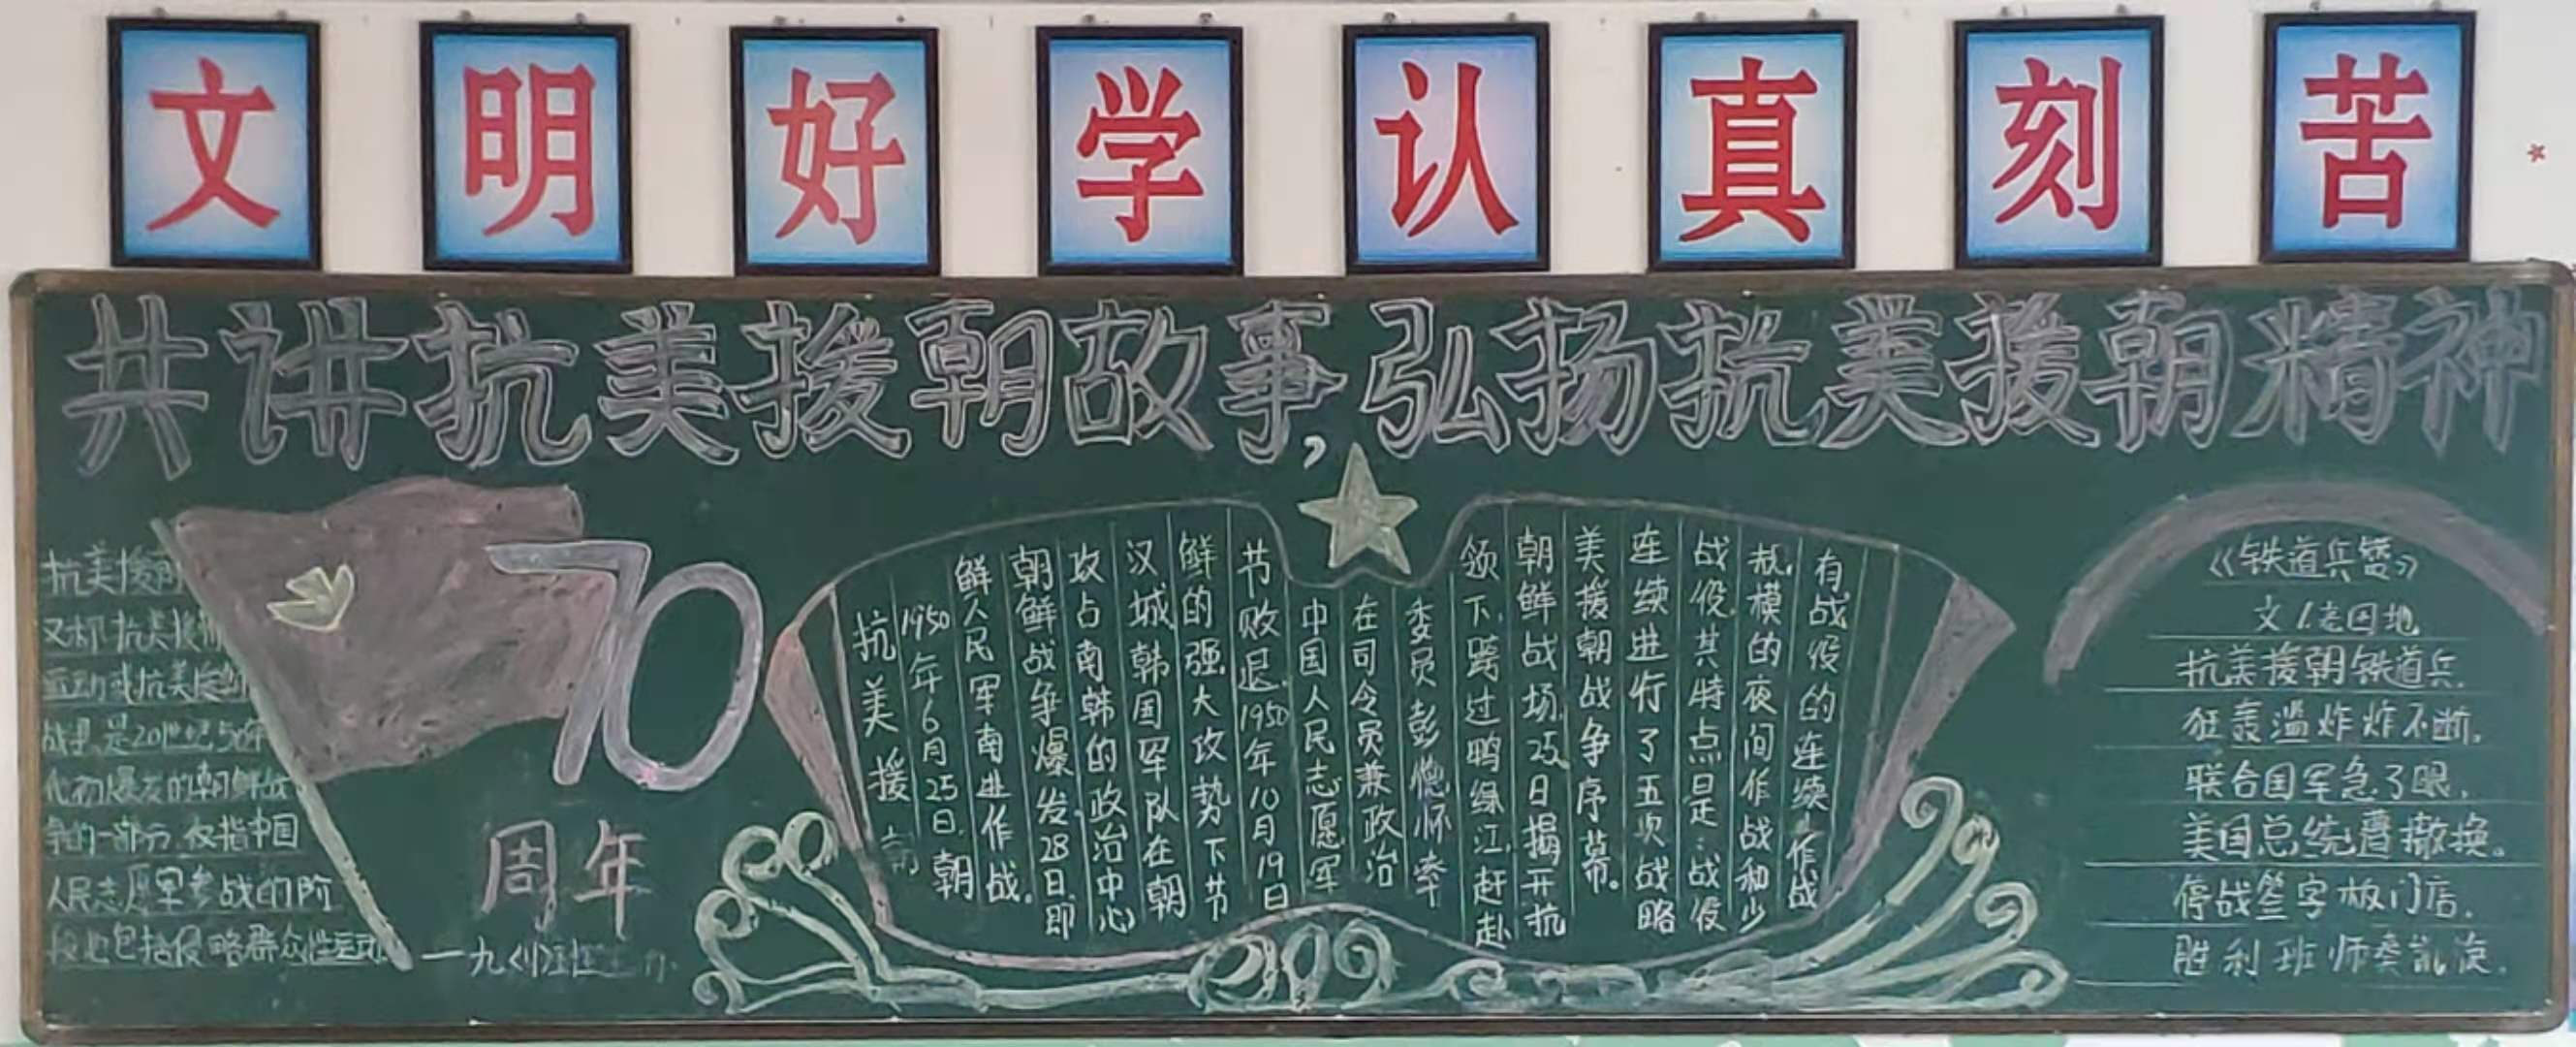 文明好学认真刻苦
共讲抗美援朝故事,弘扬抗美援朝精神
抗美援
又称抗美援
运动或抗美援朝
战争,是20世纪50年
代初爆发的朝鲜战
争的一部分,仅指中国
人民志愿军参战的阶
段,也包括侵略群众性运动
70
周年
一九
抗美援朝
1950年6月25日,朝
鲜人民军南进作战。
朝鲜战争爆发28日,即
攻占南韩的政治中心
汉城,韩国军队在朝
鲜的强大攻势下节
节败退.1950年10月19日
中国人民志愿军
在司令员兼政治
委员彭德怀率
领下,跨过鸭绿江,赶赴
朝鲜战场,25日揭开抗
美援朝战争序幕。
连续进行了五次战略
战役,其特点是:战役
规模的夜间作战和少
有战役的连续作战
《铁道兵赞》
文/老因地
抗美援朝铁道兵,
狂轰滥炸炸不断,
联合国军急了眼,
美国总统遭撤换。
停战签字板门店,
胜利班师奏凯旋。